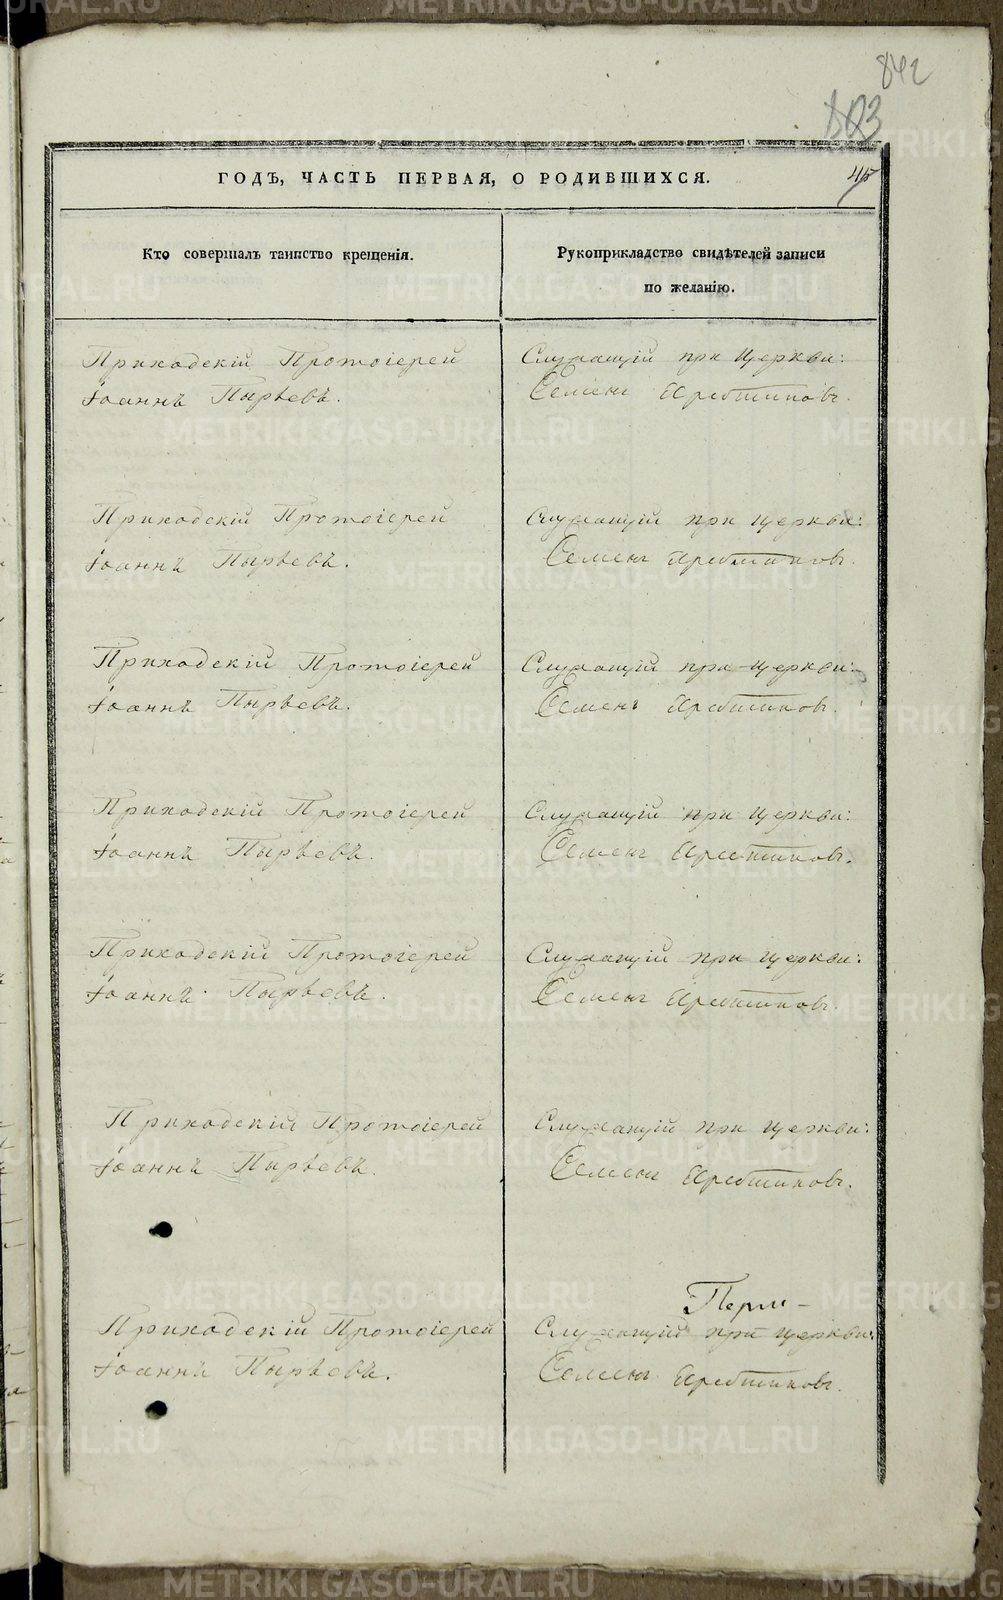 842
803
45
ГОДЪ, ЧАСТЬ ПЕРВАЯ, О РОДИВШИХСЯ.
Кто совершалъ таинство крещенія.
Рукоприкладство свидѣтелей записи
по желанію.
Приходскій Протоіерей
Іоаннъ Пырьевъ.
Служащій при церкви:
Семенъ
Приходскій Протоіерей
Іоаннъ Пырьевъ.
Служащій при церкви:
Семенъ
Приходскій Протоіерей
Іоаннъ Пырьевъ.
Служащій при церкви:
Семенъ
Приходскій Протоіерей
Іоаннъ Пырьевъ.
Служащій при церкви:
Семенъ
Приходскій Протоіерей
Іоаннъ Пырьевъ.
Служащій при церкви:
Семенъ
Приходскій Протоіерей
Іоаннъ Пырьевъ.
Служащій при церкви:
Семенъ
Перм-
Приходскій Протоіерей
Іоаннъ Пырьевъ.
Служащій при церкви:
Семенъ
METRIKI.GASO-URAL.RU